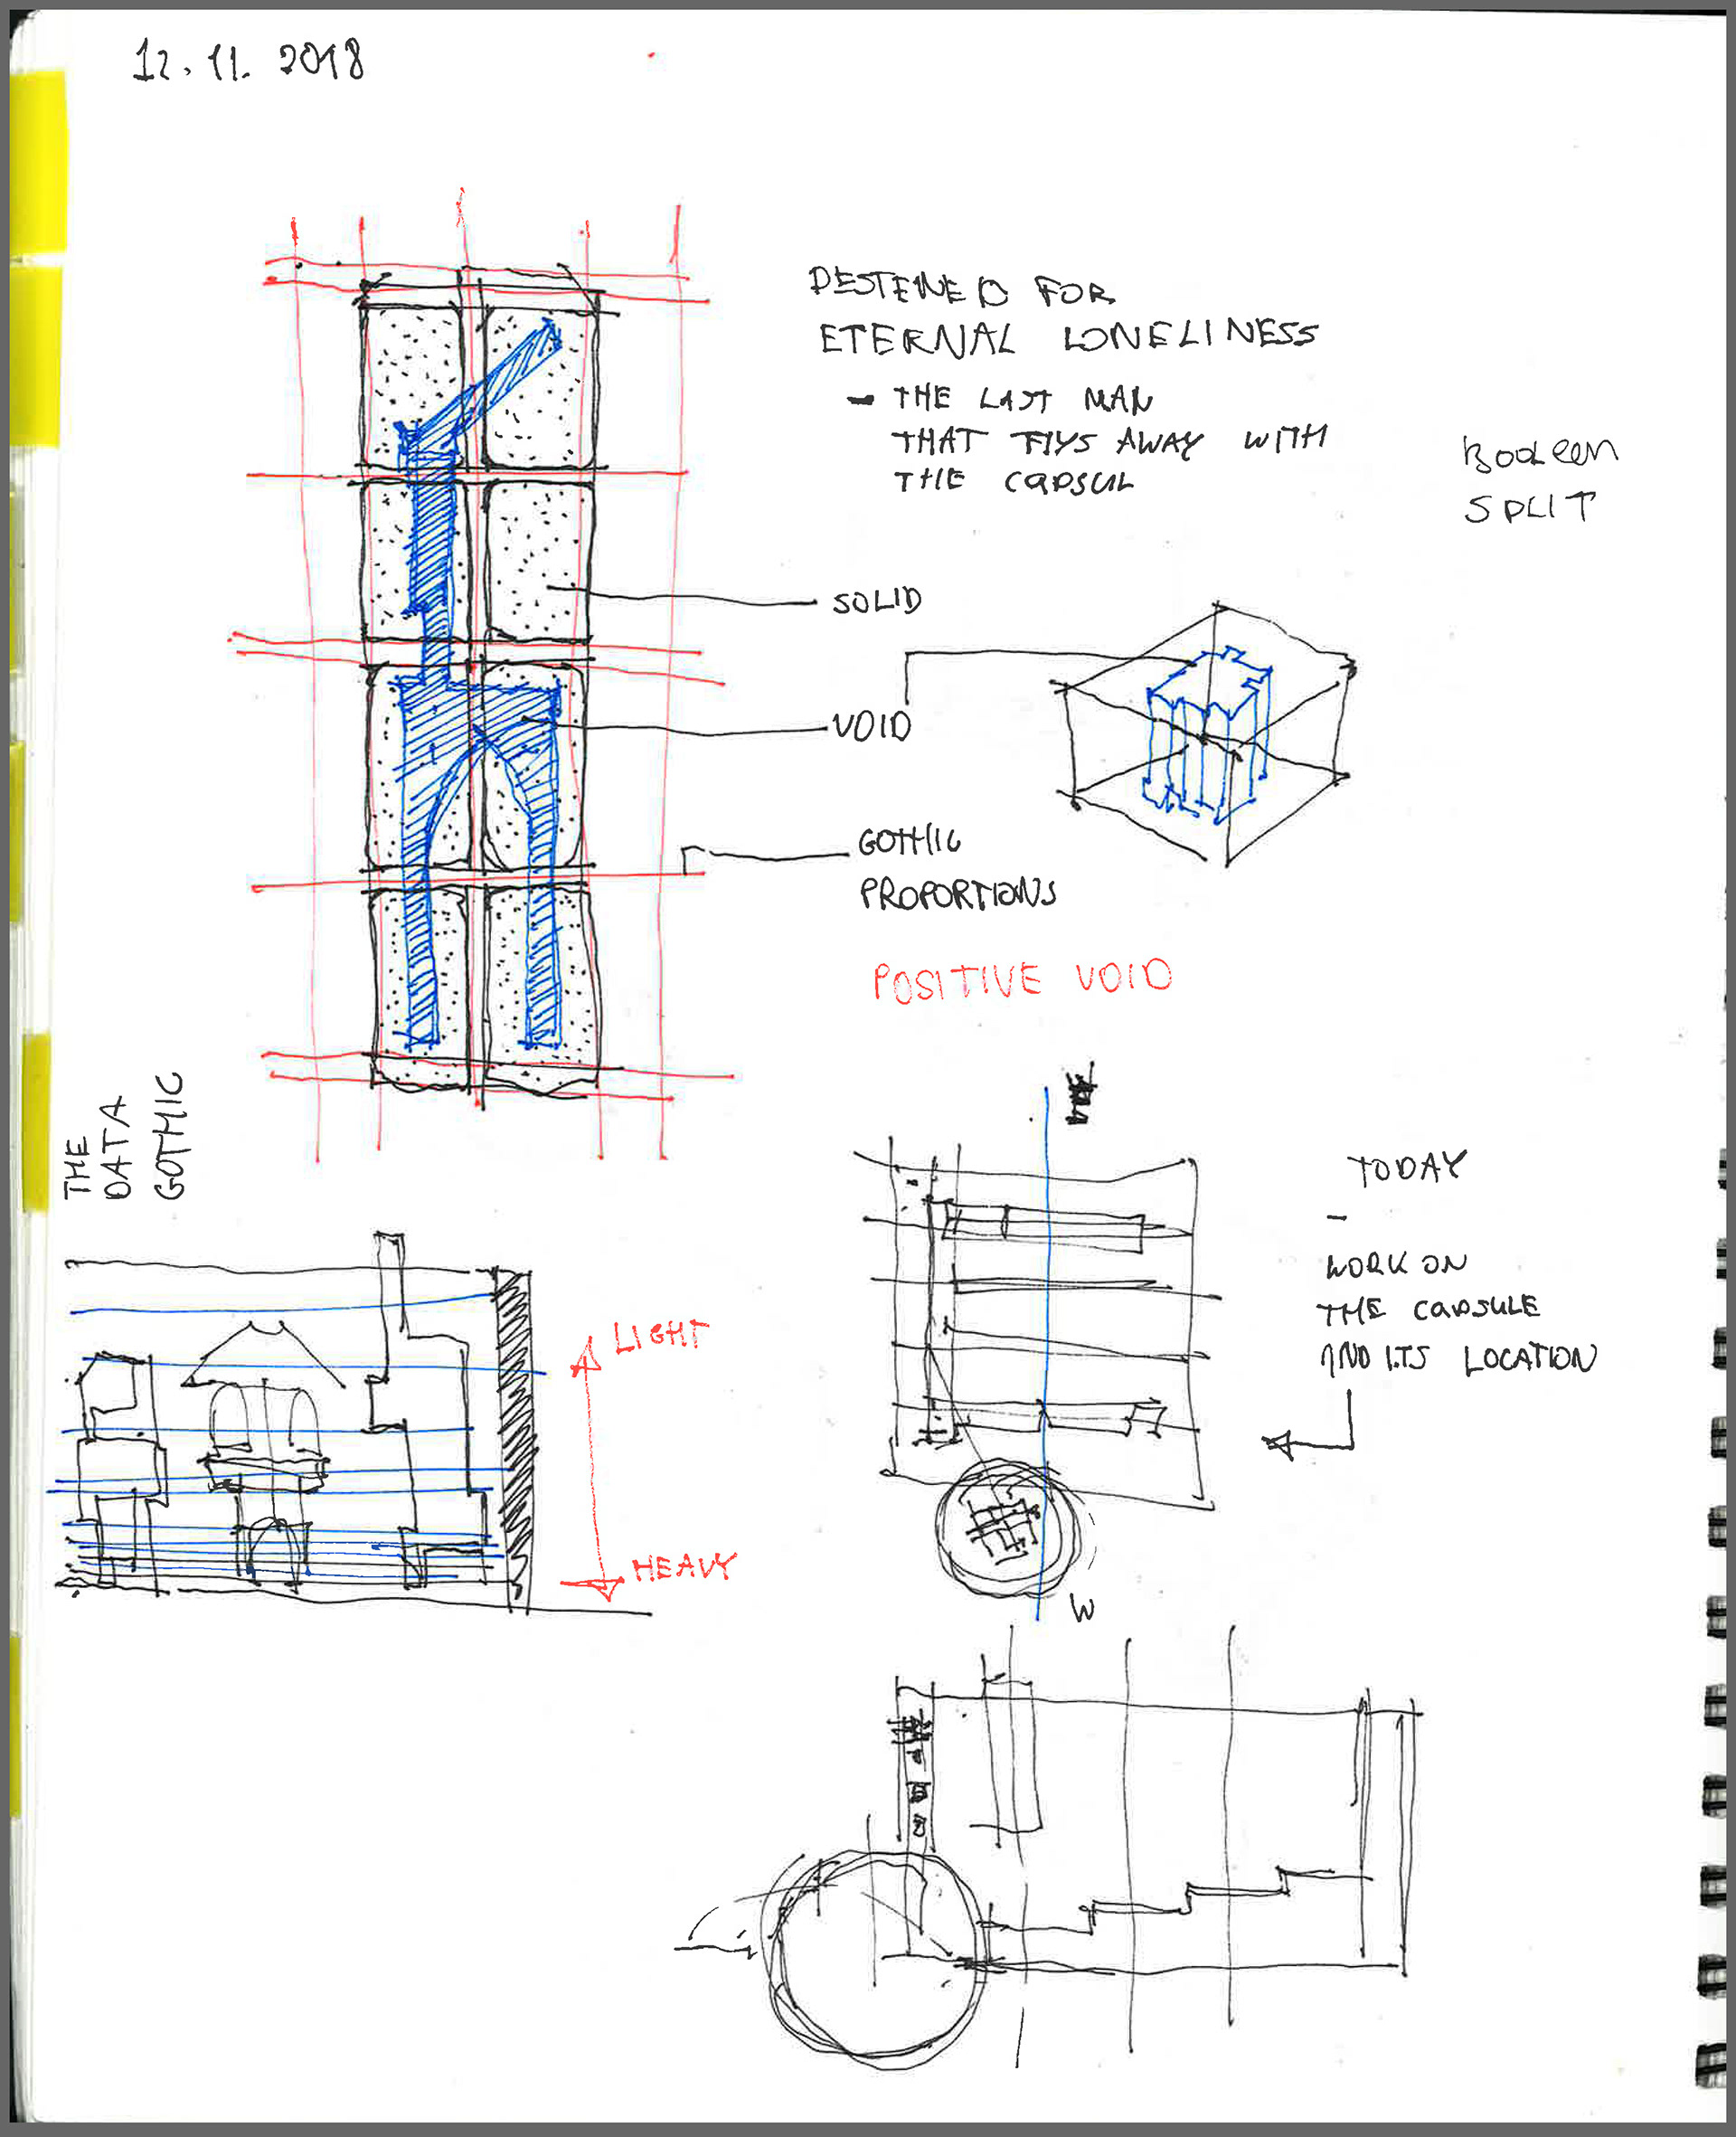 12.11.2018
DESTENED FOR
ETERNAL LONELINESS
- THE LAST MAN
THAT FLYS AWAY WITH
THE CAPSUL
BOOLEEN
SPLIT
SOLID
VOID
GOTHIC
PROPORTIONS
POSITIVE VOID
THE
DATA
GOTHIC
TODAY
-
WORK ON
THE CAPSULE
AND ITS LOCATION
LIGHT
HEAVY
W